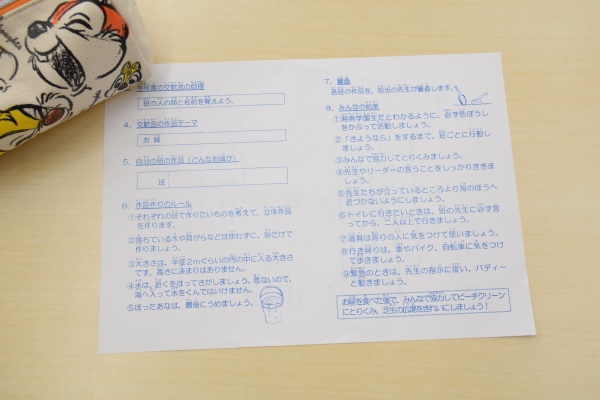 年度の交歓会の目標
班の人の顔と名前を覚えよう。
4．交歓会の作品テーマ
お 城
5．自分の班の作品（どんなお城か）
班
6．作品作りのルール
①それぞれの班で作りたいものを考えて、立体作品
を作ります。
②落ちている木や貝がらなどは使わずに、砂だけで
作りましょう。
③大きさは、半径２ｍぐらいの円の中に入る大きさ
です。高さに決まりはありません。
④水は、近くをほってさがしましょう。危ないので、
海へ入って水をくんではいけません。
⑤ほったあなは、最後にうめましょう。
7．審査
各班の作品を、担当の先生が審査します。
8．みんなの約束
①湘南学園生だとわかるように、必ず赤白ぼうし
をかぶって活動しましょう。
②「さようなら」をするまで、班ごとに行動し
ましょう。
③みんなで協力してとりくみましょう。
④先生やリーダーの言うことをしっかりききま
しょう。
⑤先生たちが立っているところより海のほうへ
近づかないようにしましょう。
⑥トイレに行きたいときは、班の先生に必ず言
ってから、二人以上で行きましょう。
⑦道具は周りの人に気をつけて使いましょう。
⑧行き帰りは、車やバイク、自転車に気をつけ
て歩きましょう。
⑨緊急のときは、先生の指示に従い、バディー
と動きましょう。
お昼を食べた後で、みんなで協力してビーチクリーン
にとりくみ、芝生の広場をきれいにしましょう！